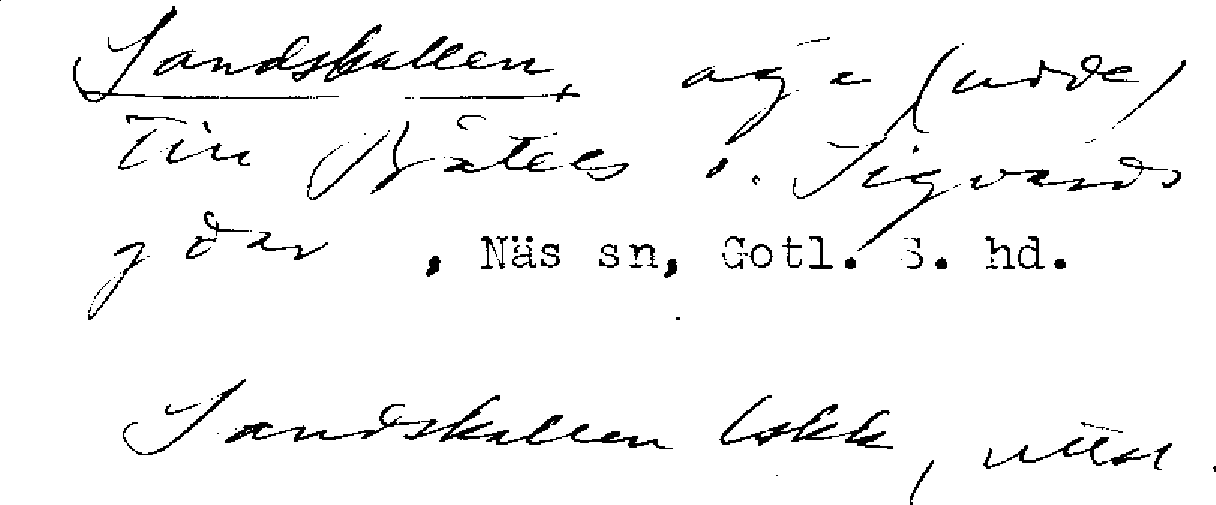 Sandskallen, äga (udde)
Till Båtels o. Sigvards
gdar, Näs sn, Gotl. S. hd.
Sandskallen Lskk, utsl.